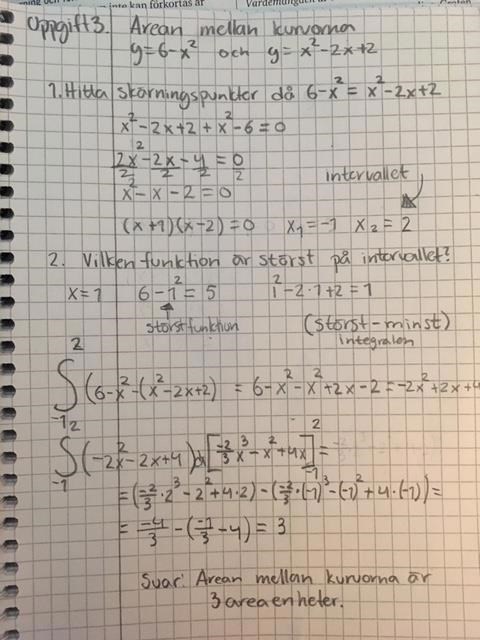 inte kan förkortas är
Uppgift 3. Arean mellan kurvorna
y=6-x² och y=x²-2x+2
1. Hitta skärningspunkter då 6-x²=x²-2x+2
x²-2x+2+x²-6=0
2x²/2-2x/2-4/2=0/2
intervallet
x²-x-2=0
(x+1)(x-2)=0 x₁=-1 x₂=2
2. Vilken funktion är störst på intervallet?
x=1 6-1²=5 1²-2·1+2=1
störst funktion (störst-minst)
integralen
∫₋₁² (6-x²-(x²-2x+2) = 6-x²-x²+2x-2=-2x²+2x+4
∫₋₁² (-2x²-2x+4)dx [-2/3 x³-x²+4x]₋₁² =
=(-2/3·2³-2²+4·2)-(-2/3·(-1)³-(-1)²+4·(-1))=
= -4/3-(-1/3-4) = 3
Svar: Arean mellan kurvorna är
3 areaenheter.